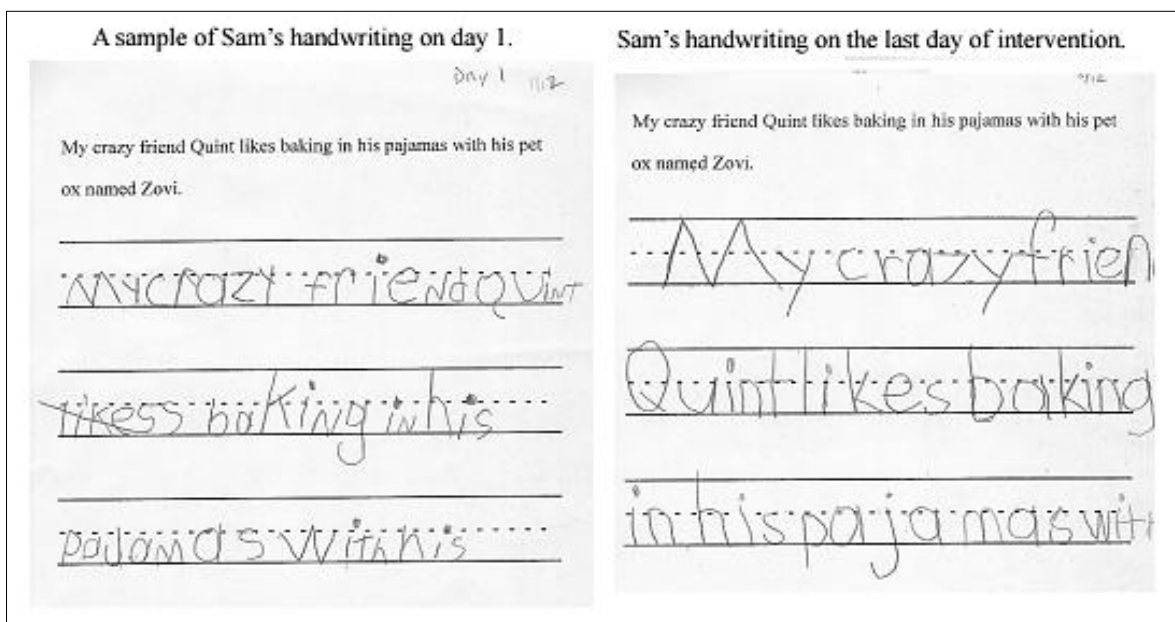 A sample of Sam's handwriting on day 1.
Day 1 11/12
My crazy friend Quint likes baking in his pajamas with his pet
ox named Zovi.
My crazy friend Quint
likess baking in his
pajamas with his
Sam's handwriting on the last day of intervention.
My crazy friend Quint likes baking in his pajamas with his pet
ox named Zovi.
My crazy frien
Quint likes baking
in his pajamas wit